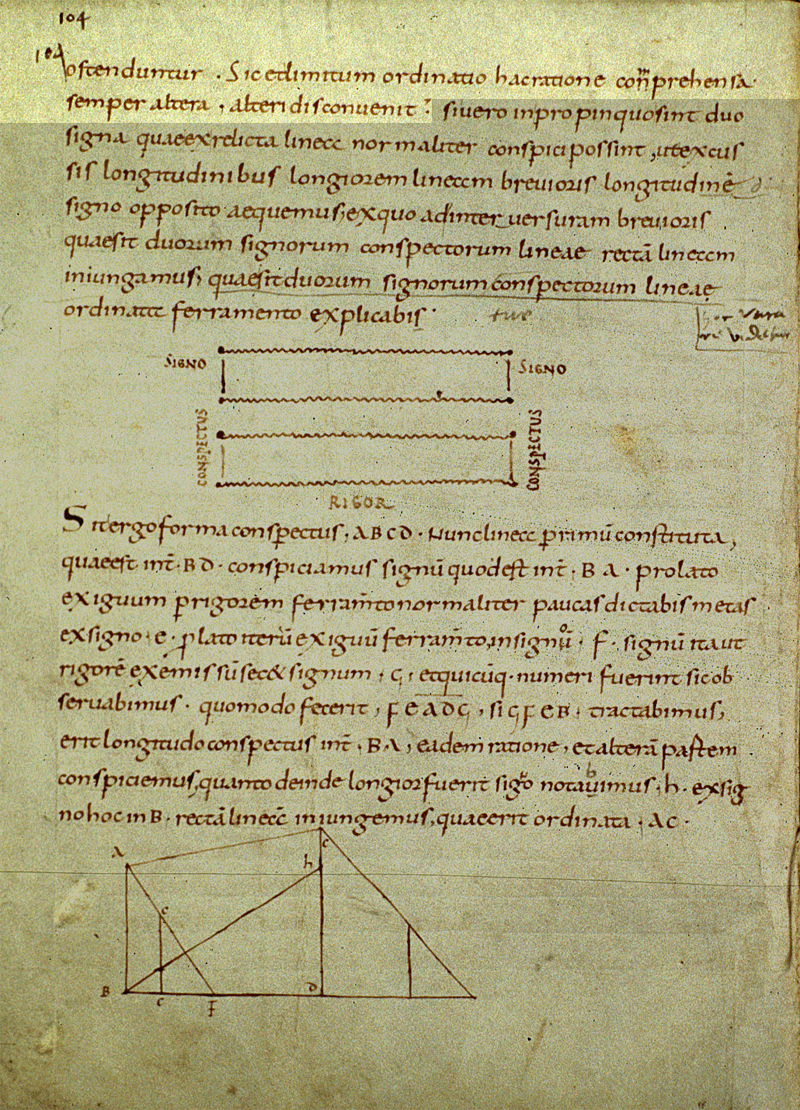 104
104
ostenduntur . Sic et limitum ordinatio hac ratione comprehensa
semper altera , alteri disconuenit . si uero in propinquo sint duo
signa quae ex relicta linea normaliter conspici possint , ut ex eus
sis longitudinibus longiorem lineam breuioris longitudinē
signo opposito aequemus, ex quo ad inter uersuram breuioris .
quae sit duorum signorum conspectorum lineae rectā lineam
iniungamus, quae sit duorum signorum conspectorum lineae
ordinata ferramento explicabis .
SIGNO SIGNO
CONSPECTUS CONSPECTUS
RIGOR
Sit ergo forma conspectus , A B C D . Nunc linea primū constituta ,
quae est int . B D . conspiciamus signū quod est int . B A . prolato
exiguum p rigorem ferramto normaliter paucas dictabis metas
ex signo . e . plato iterū exiguū ferramto, in signū . f . signū ita ut
rigorē exemissū secet signum , c , et quicūq . numeri fuerint sic ob
seruabimus . quomodo fecerit , F E A D C , sic F E B , tractabimus,
erit longitudo conspectus int . B A , eadem ratione , et alterā partem
conspiciemus, quanto deinde longior fuerit signo notauimus , h . ex sig
no hoc in B . rectā lineā iniungemus, quae erit ordinata , A C .
A
C
h
e
B
C
F
D